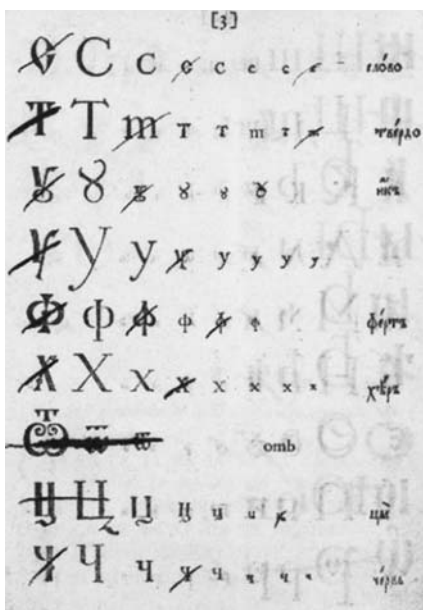 [3]
Є С С с с с с с сло́во
Т Т т т т т т т тве́рдо
Ꙋ Ꙋ ꙋ ꙋ ꙋ ꙋ и́къ
У У у у у у у у
Ф Ф ф ф ф ф фе́ртъ
Х Х х х х х х х хѣ́ръ
Ѿ ѿ ѿ отъ
Ц Ц Ц ц ц ц ц цы̀
Ч Ч ч ч ч ч ч ч че́рвь